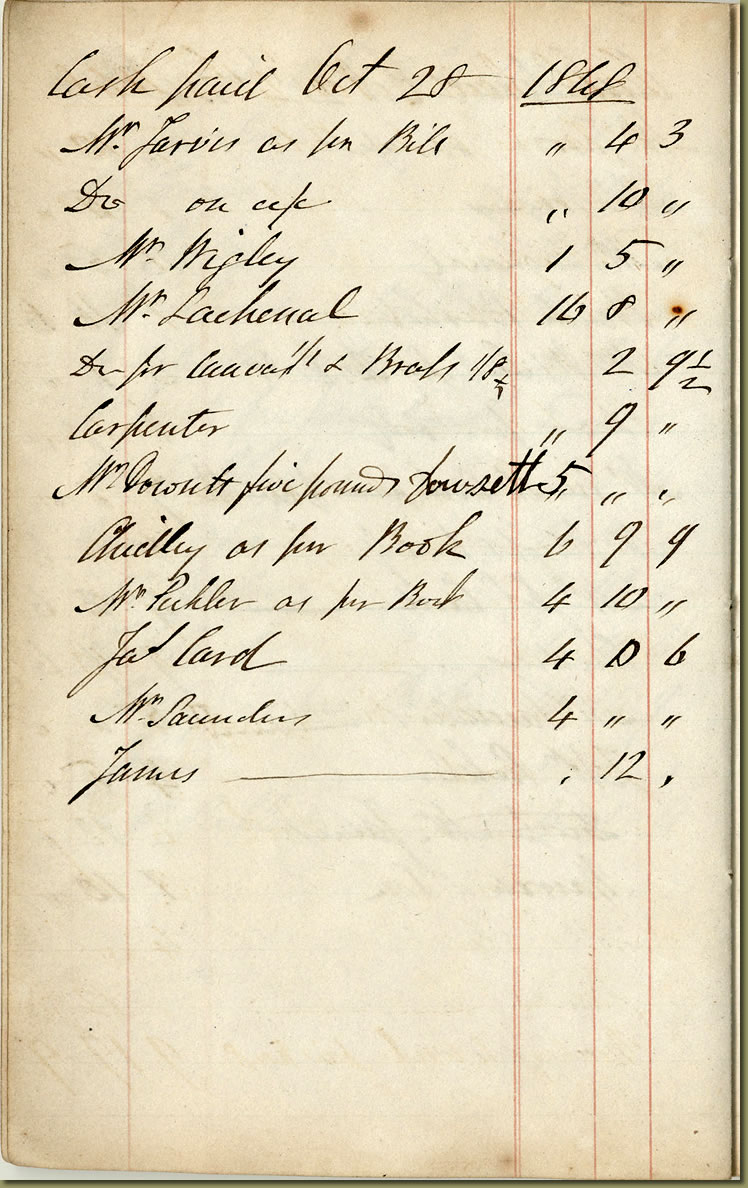 Cash paid Oct 28 1868
Mr. Jarvis as per Bill " 4 3
Do on a/c " 10 "
Mr. Wigley 1 5 "
Mr. Lachenal 16 8 "
Do for Canvas 1/1 & Brass 1/8½ 2 9½
Carpenter " 9 "
Mr Dowsett five pounds Dowsett 5 " "
Chidley as per Book 6 9 9
Mr as per Book 4 10 "
Jas Card 4 0 6
Mr. Saunders 4 " "
James — " 12 "